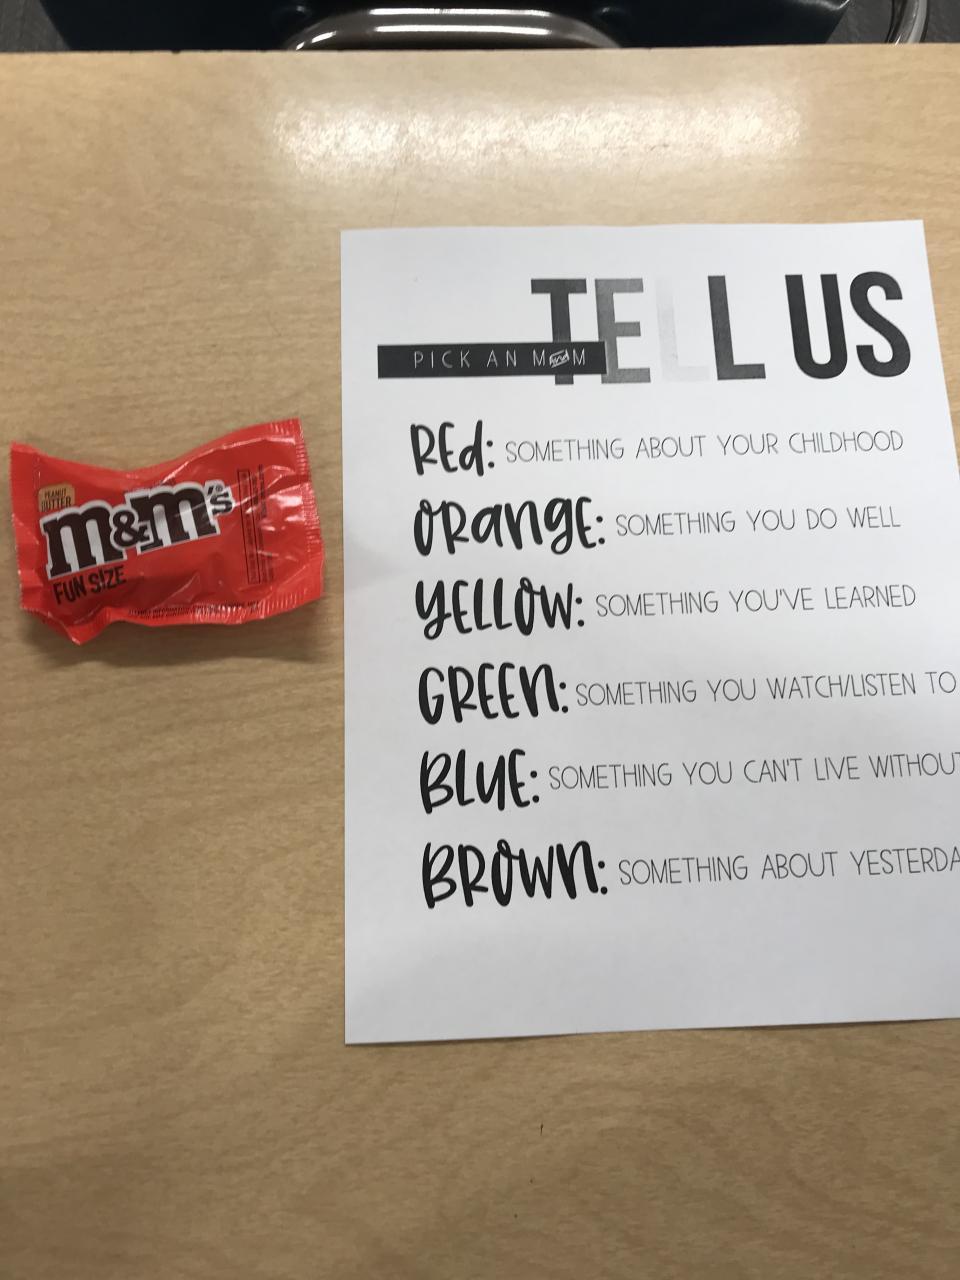 TELL US
PICK AN M and M
REd: SOMETHING ABOUT YOUR CHILDHOOD
ORangE: SOMETHING YOU DO WELL
YELLOW: SOMETHING YOU'VE LEARNED
GREEn: SOMETHING YOU WATCH/LISTEN TO
BLUE: SOMETHING YOU CAN'T LIVE WITHOUT
BROWn: SOMETHING ABOUT YESTERDA
PEANUT
BUTTER
m&m's®
FUN SIZE